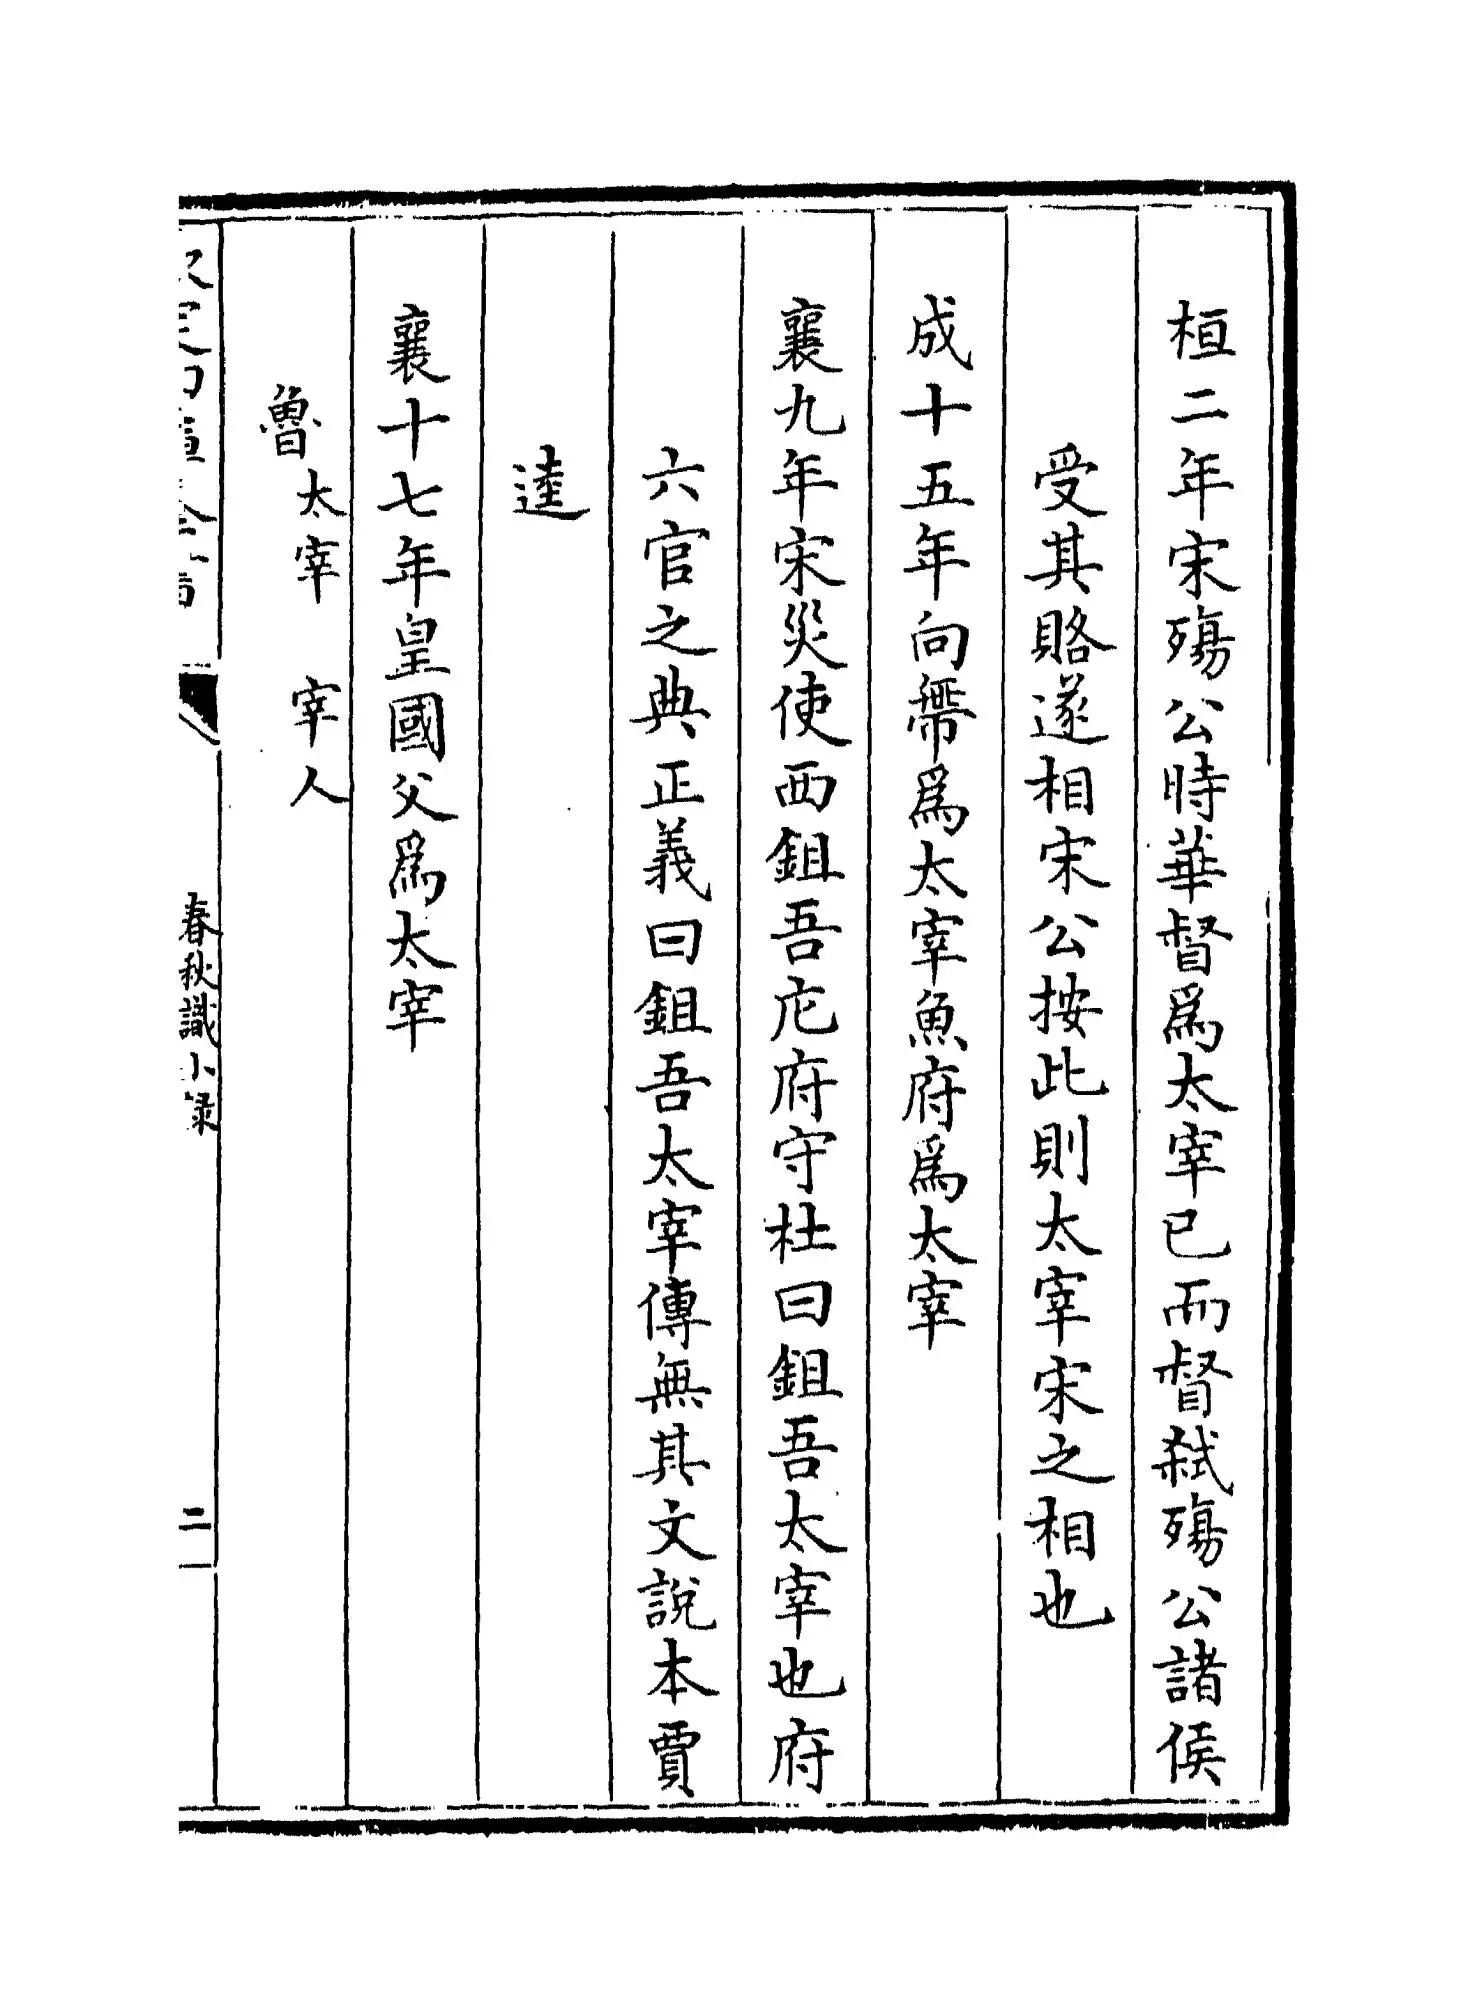 桓二年宋殤公時華督爲太宰已而督弑殤公諸侯
受其賂遂相宋公按此則太宰宋之相也
成十五年向帶爲太宰魚府爲太宰
襄九年宋災使西鉏吾庀府守杜曰鉏吾太宰也府
六官之典正義曰鉏吾太宰傳無其文說本賈
逵
襄十七年皇國父爲太宰
魯太宰 宰人
春秋識小錄
二